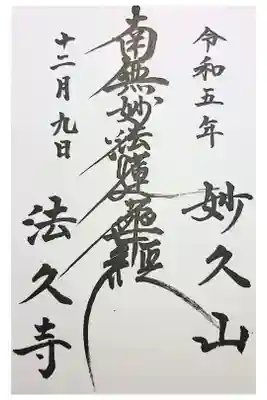 令和五年
妙久山
南無妙法蓮華経
十二月九日
法久寺